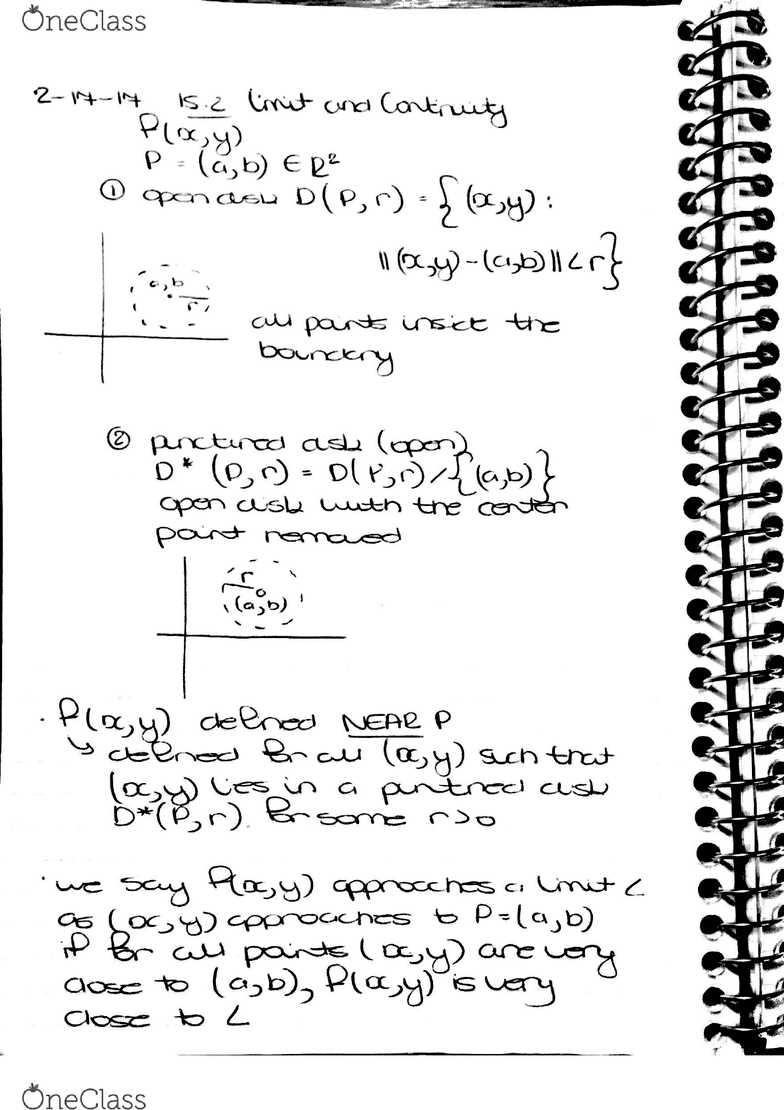 OneClass
2-17-17 15.2 limit and Continuity
f(x,y)
P = (a,b) ∈ R²
① open disk D(P,r) = {(x,y) :
||(x,y)-(a,b)|| < r}
a,b
r
all points inside the
boundary
② punctured disk (open)
D* (P,r) = D(P,r) / {(a,b)}
open disk with the center
point removed
r
(a,b)
· f(x,y) defined NEAR P
↳ defined for all (x,y) such that
(x,y) lies in a puntred disk
D*(P,r). for some r>0
· we say f(x,y) approaches a limit L
as (x,y) approaches to P=(a,b)
if for all points (x,y) are very
close to (a,b), f(x,y) is very
close to L
OneClass